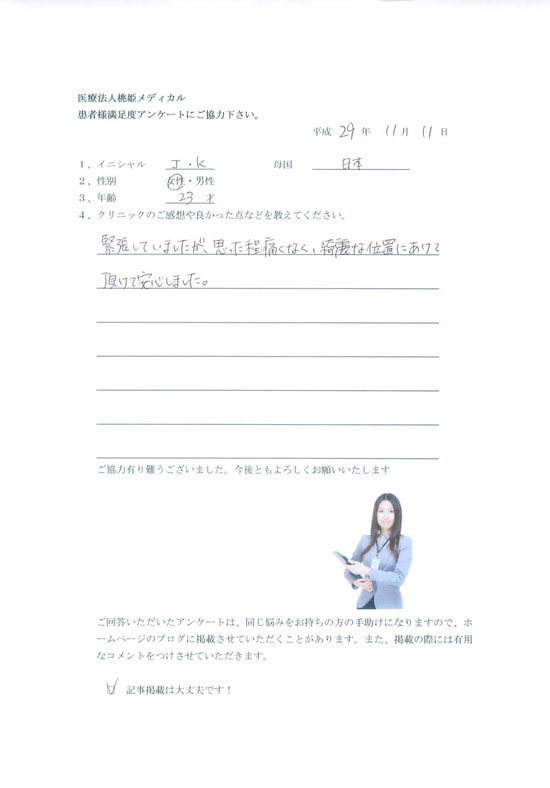 医療法人桃姫メディカル
患者様満足度アンケートにご協力下さい。
平成 29 年 11 月 11 日
1、イニシャル J・K 母国 日本
2、性別 女性・男性
3、年齢 23 才
4、クリニックのご感想や良かった点などを教えてください。
緊張していましたが、思った程痛くなく、綺麗な位置にあけて
頂けて安心しました。
ご協力有り難うございました。今後ともよろしくお願いいたします
ご回答いただいたアンケートは、同じ悩みをお持ちの方の手助けになりますので、ホ
ームページのブログに掲載させていただくことがあります。また、掲載の際には有用
なコメントをつけさせていただきます。
記事掲載は大丈夫です！